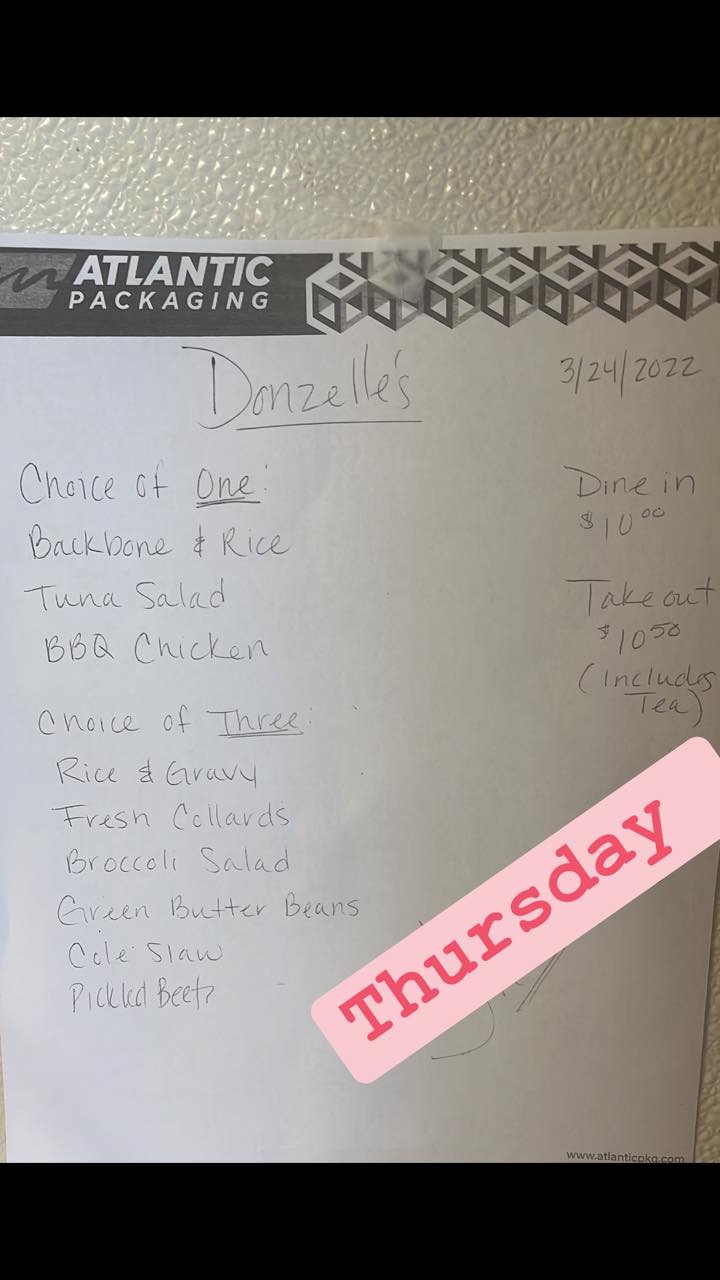 ATLANTIC
PACKAGING
Donzelle's
3/24/2022
Choice of One:
Backbone & Rice
Tuna Salad
BBQ Chicken
Dine in
$10 00
Take out
$10 50
(includes
Tea)
Choice of Three:
Rice & Gravy
Fresh Collards
Broccoli Salad
Green Butter Beans
Cole Slaw
Pickled Beets
Thursday
www.atlanticpkg.com